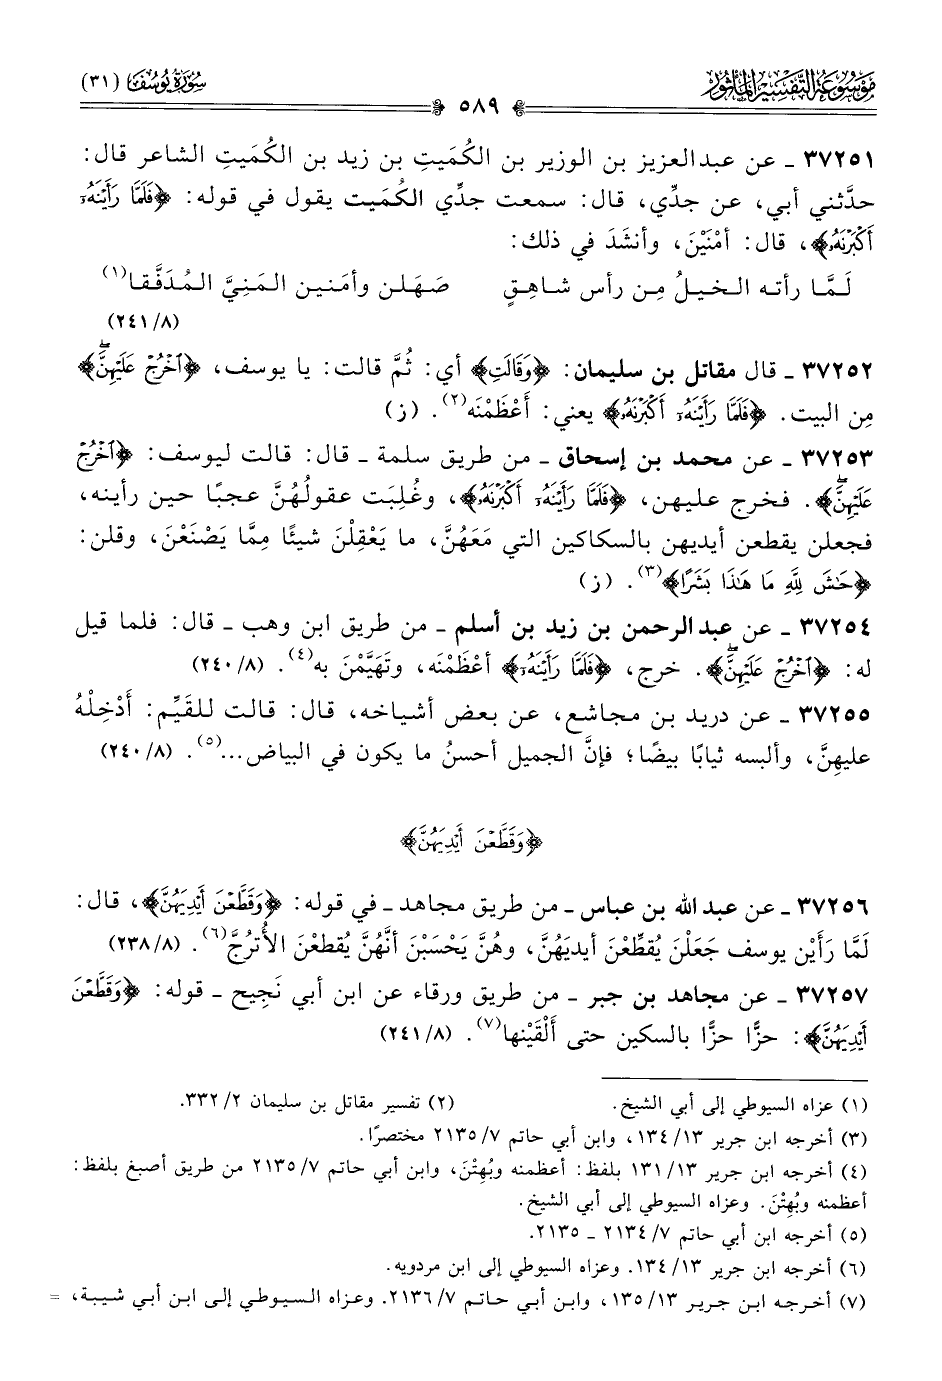 مَوْسُوعَة التَّفْسِير المَأثُور
سُورَةُ يُوسُف (٣١)
٥٨٩
٣٧٢٥١ ـ عن عبدالعزيز بن الوزير بن الكُمَيتِ بن زيد بن الكُمَيتِ الشاعر قال:
حدَّثني أبي، عن جدِّي، قال: سمعت جدِّي الكُمَيت يقول في قوله: ﴿فَلَمَّا رَأَيْنَهُۥٓ
أَكْبَرْنَهُۥ﴾، قال: أمْنَيْنَ، وأنشَدَ في ذلك:
لَمَّا رأته الخيلُ مِن رأس شاهِقٍ صَهَلن وأمْنين المَنِيَّ المُدَفَّقا(١)
(٨/ ٢٤١)
٣٧٢٥٢ ـ قال مقاتل بن سليمان: ﴿وَقَالَتِ﴾ أي: ثُمَّ قالت: يا يوسف، ﴿ٱخْرُجْ عَلَيْهِنَّۖ﴾
مِن البيت. ﴿فَلَمَّا رَأَيْنَهُۥٓ أَكْبَرْنَهُۥ﴾ يعني: أَعْظَمْنَه(٢). (ز)
٣٧٢٥٣ ـ عن محمد بن إسحاق ـ من طريق سلمة ـ قال: قالت ليوسف: ﴿ٱخْرُجْ
عَلَيْهِنَّۖ﴾. فخرج عليهن، ﴿فَلَمَّا رَأَيْنَهُۥٓ أَكْبَرْنَهُۥ﴾، وغُلِبَت عقولُهُنَّ عجبًا حين رأينه،
فجعلن يقطعن أيديهن بالسكاكين التي مَعَهُنَّ، ما يَعْقِلْنَ شيئًا مِمَّا يَصْنَعْنَ، وقلن:
﴿حَٰشَ لِلَّهِ مَا هَٰذَا بَشَرًا﴾(٣). (ز)
٣٧٢٥٤ ـ عن عبدالرحمن بن زيد بن أسلم ـ من طريق ابن وهب ـ قال: فلما قيل
له: ﴿ٱخْرُجْ عَلَيْهِنَّۖ﴾. خرج، ﴿فَلَمَّا رَأَيْنَهُۥٓ﴾ أعْظَمْنَه، وتَهَيَّمْنَ به(٤). (٨/ ٢٤٠)
٣٧٢٥٥ ـ عن دريد بن مجاشع، عن بعض أشياخه، قال: قالت للقَيِّم: أَدْخِلْهُ
عليهِنَّ، وألبسه ثيابًا بيضًا؛ فإنَّ الجميل أحسنُ ما يكون في البياض...(٥). (٨/ ٢٤٠)
﴿وَقَطَّعْنَ أَيْدِيَهُنَّ﴾
٣٧٢٥٦ ـ عن عبدالله بن عباس ـ من طريق مجاهد ـ في قوله: ﴿وَقَطَّعْنَ أَيْدِيَهُنَّ﴾، قال:
لَمَّا رَأَيْن يوسف جَعَلْنَ يُقطِّعْنَ أيديَهُنَّ، وهُنَّ يَحْسَبْنَ أنَّهُنَّ يُقطعْنَ الأُترُجَّ(٦). (٨/ ٢٣٨)
٣٧٢٥٧ ـ عن مجاهد بن جبر ـ من طريق ورقاء عن ابن أبي نَجِيح ـ قوله: ﴿وَقَطَّعْنَ
أَيْدِيَهُنَّ﴾: حزًّا حزًّا بالسكين حتى أَلْقَيْنها(٧). (٨/ ٢٤١)
(١) عزاه السيوطي إلى أبي الشيخ. (٢) تفسير مقاتل بن سليمان ٢/ ٣٣٢.
(٣) أخرجه ابن جرير ١٣/ ١٣٤، وابن أبي حاتم ٧/ ٢١٣٥ مختصرًا.
(٤) أخرجه ابن جرير ١٣/ ١٣١ بلفظ: أعظمنه وبُهِتْنَ، وابن أبي حاتم ٧/ ٢١٣٥ من طريق أصبغ بلفظ:
أعظمنه وبُهِتْنَ. وعزاه السيوطي إلى أبي الشيخ.
(٥) أخرجه ابن أبي حاتم ٧/ ٢١٣٤ ـ ٢١٣٥.
(٦) أخرجه ابن جرير ١٣/ ١٣٤. وعزاه السيوطي إلى ابن مردويه.
(٧) أخرجه ابن جرير ١٣/ ١٣٥، وابن أبي حاتم ٧/ ٢١٣٦. وعزاه السيوطي إلى ابن أبي شيبة، =